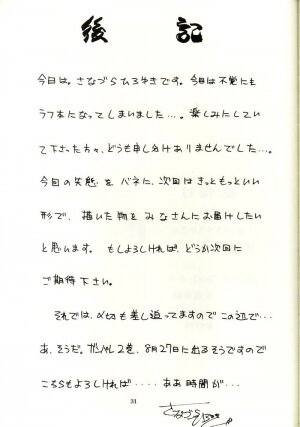 後記
今日は。さなづらひろゆきです。今回は不覚にも
ラフ本になってしまいました…。楽しみにしてい
て下さった方々、どうも申し分けありませんでした…。
今回の失態をバネに、次回はきっともっといい
形で、描いた物をみなさんにお届けしたい
と思います。もしよろしければ、どうか次回に
ご期待下さい。
それでは、〆切も差し迫ってますのでこの辺で…
あ、そうだ。 2巻、8月27日に出るそうですので
こちらもよろしければ……ああ時間が…
31
さなづら